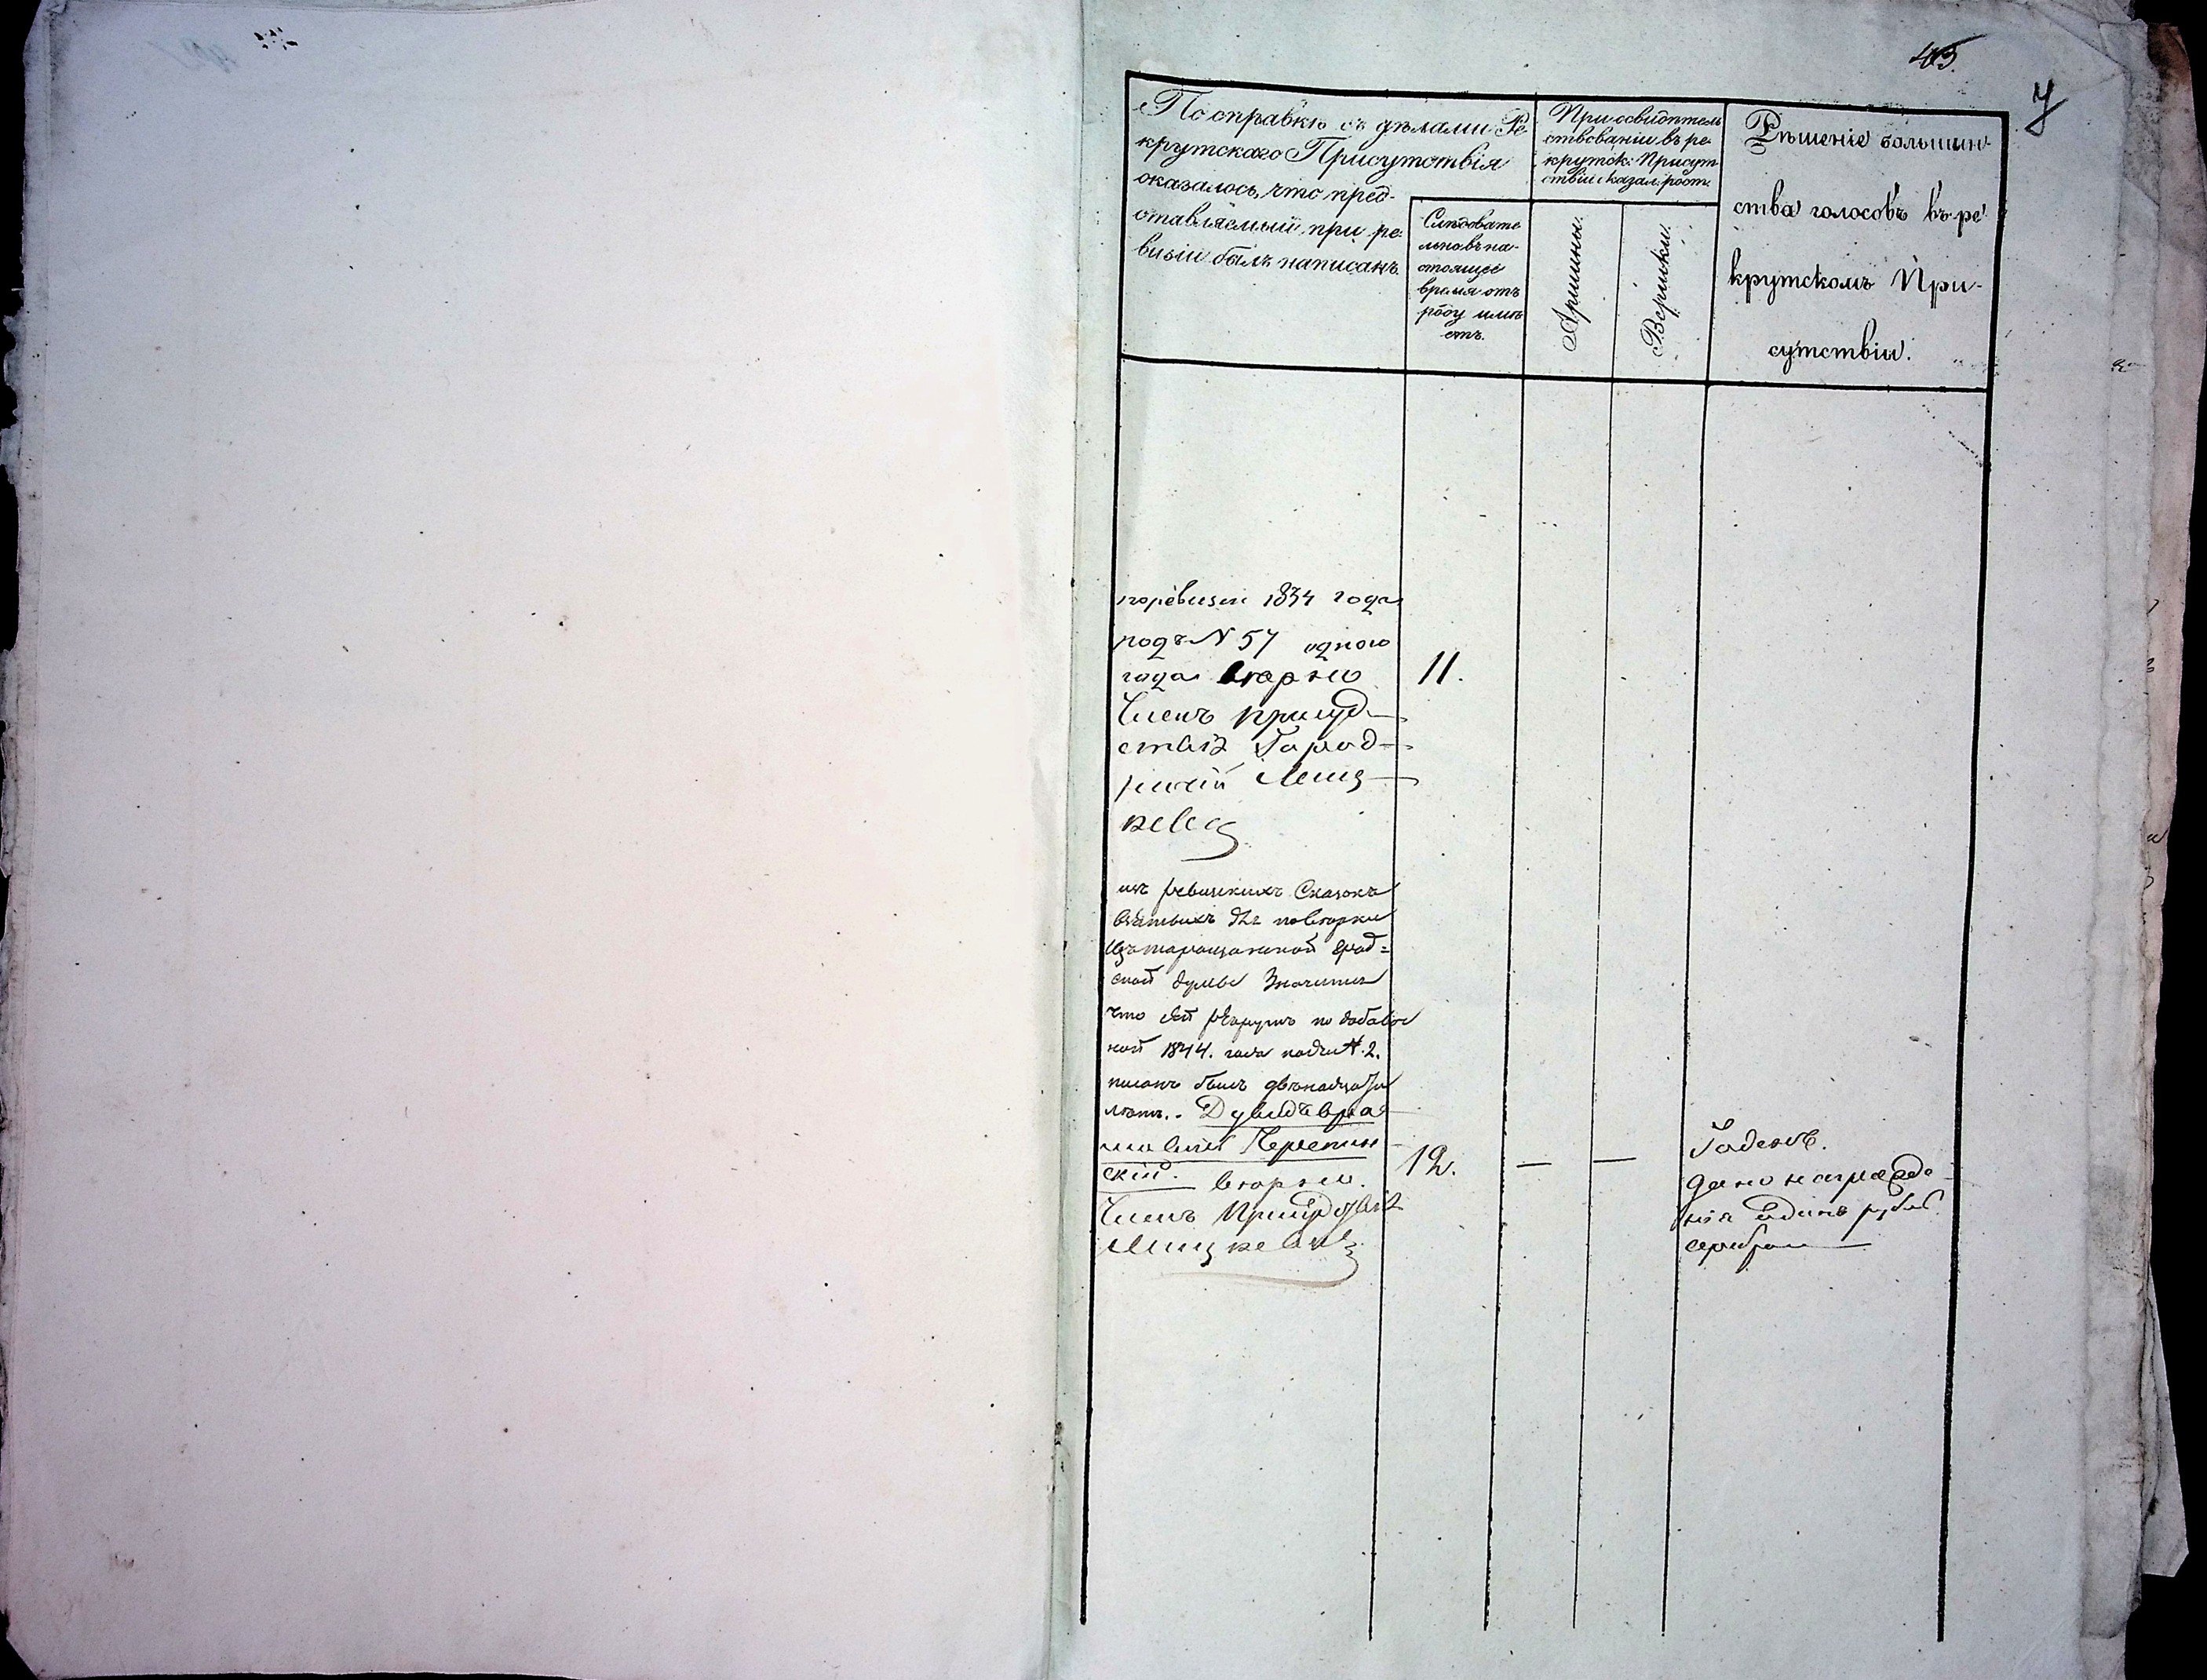 43.
7
По справкѣ съ дѣлами Ре-
крутскаго Присутствія
оказалось, что пред-
ставляемый при ре-
визіи былъ написанъ.
Слѣдовате
льно въ на-
стоящее
время отъ
роду имѣ
етъ.
При освидѣтель
ствованіи въ ре-
крутск: Присут
ствіи оказал. рост.
Аршины.
Вершки.
Рѣшеніе большин-
ства голосовъ въ ре
крутскомъ При-
сутствіи.
по ревизіи 1834 года
подъ N 57 одного
года вѣрно
11.
Членъ присуд-
ствія Город-
ничій Миц-
кевич
изъ ревизскихъ Сказокъ
взятыхъ для повѣрки
изъ таращанской град=
ской думы Значится
что сей рекрутъ по добавоч
ной 1844. года подъ N. 2.
писанъ былъ двенадцати
лѣтъ. - Дувидъ Авра
мовичъ Черепин
скій. вѣрно.
12. — —
Членъ Присудствія
Мицкевичъ
Годенъ.
дано награжде
нія Единъ рубль
серебромъ